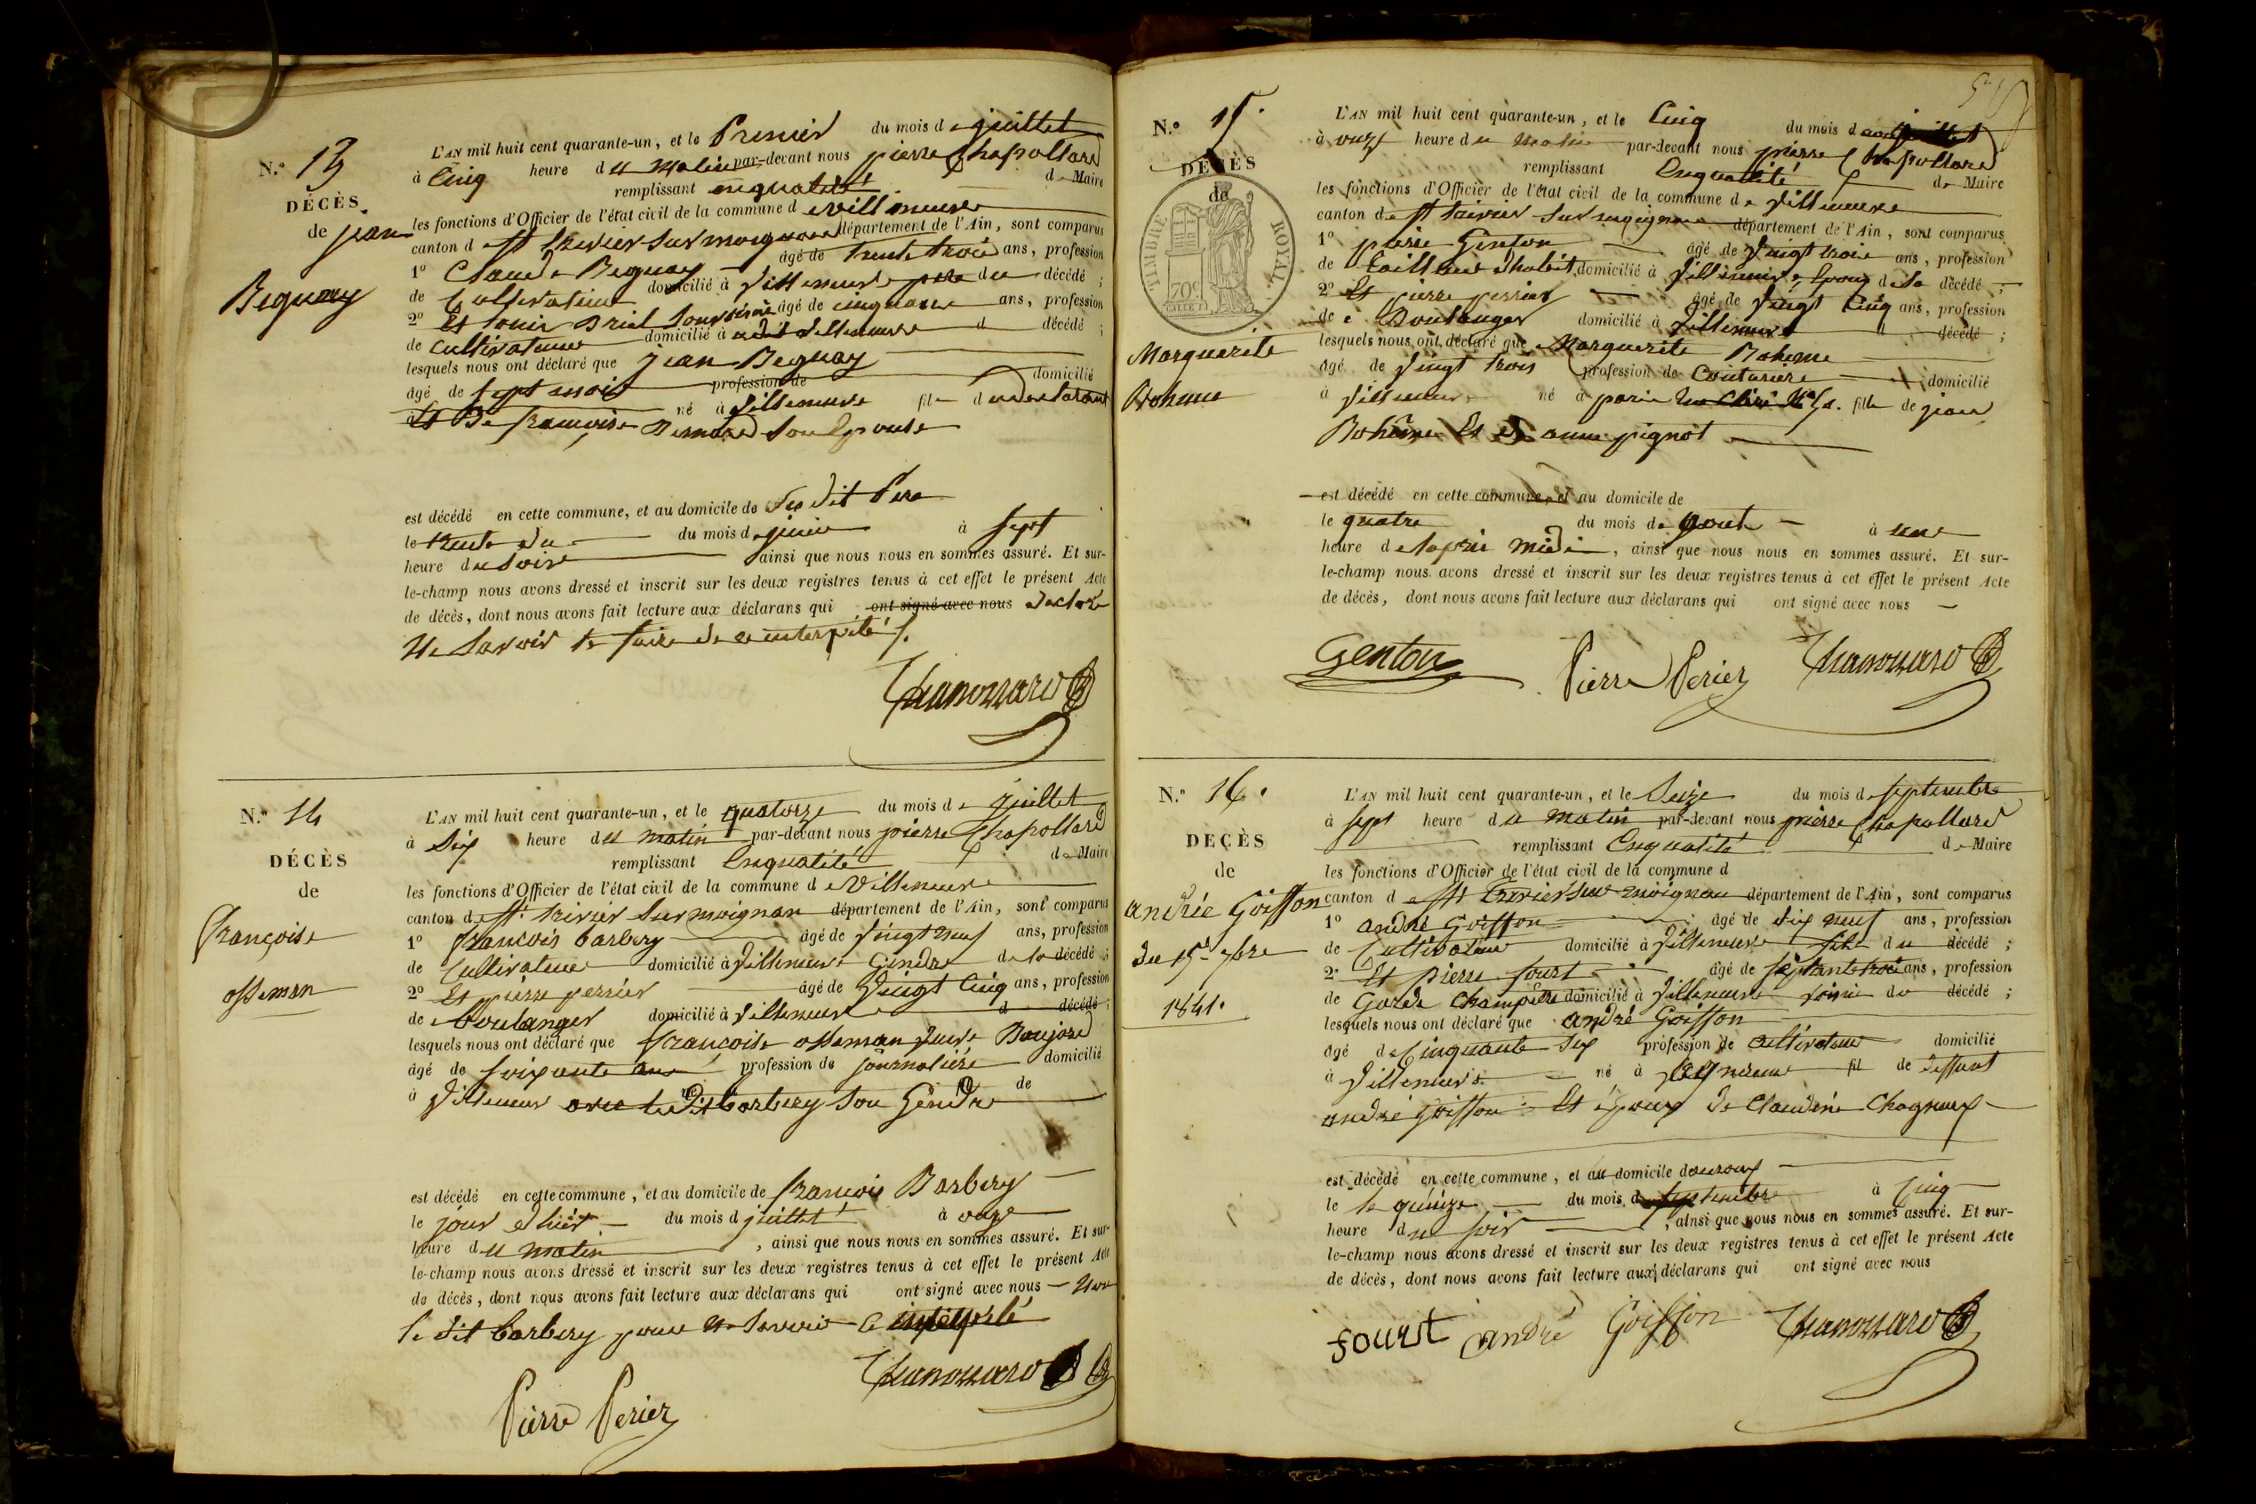 N.º 13
DÉCÈS
de jean
Beguay
L'AN mil huit cent quarante-un, et le Premier du mois de juillet
à Cinq heure du matin par-devant nous pierre Chapollard
remplissant enqualité de Maire
les fonctions d'Officier de l'état civil de la commune de villeneuve
canton de St trivier sur moignans département de l'Ain, sont comparus
1º Claude Beguay âgé de trente trois ans, profession
de Cultivateur domicilié à Villeneuve père du décédé ;
2º Et Louis Briel son voisin âgé de cinquante ans, profession
de cultivateur domicilié à udit villeneuve d décédé ;
lesquels nous ont déclaré que jean Beguay
âgé de sept mois profession de domicilié
à né à Villeneuve fil du declarant
Et De francoise Bernard son Epouse
est décédé en cette commune, et au domicile de sus dit Pere
le trente du du mois de juin à sept
heure du soir ainsi que nous nous en sommes assuré. Et sur-
le-champ nous avons dressé et inscrit sur les deux registres tenus à cet effet le présent Acte
de décès, dont nous avons fait lecture aux déclarans qui ont signé avec nous declaré
Ne Savoir le faire de ce interpélé
N.º 14
DÉCÈS
de
françoise
osseman
L'AN mil huit cent quarante-un, et le quatorze du mois de juillet
à Six heure du matin par-devant nous pierre Chapollard
remplissant Enqualité de Maire
les fonctions d'Officier de l'état civil de la commune de Villeneuve
canton de St. trivier sur moignan département de l'Ain, sont comparus
1º francois barbery âgé de Vingt neuf ans, profession
de Cultivateur domicilié à Villeneuve Gendre de la décédé ;
2º Et pierre perrier âgé de Vingt Cinq ans, profession
de boulanger domicilié à Villeneuve d décédé ;
lesquels nous ont déclaré que francoise osseman veuve Boujard
âgé de soixante ans profession de journaliére domicilié
à Villeneuve avec le dit barbery son Gendre de
est décédé en cette commune, et au domicile de francois Barbery
le jour d'hier du mois d juillet à onze
heure du matin , ainsi que nous nous en sommes assuré. Et sur-
le-champ nous avons dressé et inscrit sur les deux registres tenus à cet effet le présent Acte
de décès, dont nous avons fait lecture aux déclarans qui ont signé avec nous — Non
le dit barbery pour ne Savoir
Pierre Perier
N.º 15.
DÉCÈS
de
TIMBRE ROYAL
70c
Marguerite
Boheme
L'AN mil huit cent quarante-un, et le Cinq du mois d aout
à onze heure du matin par-devant nous pierre Chapollard
remplissant Enqualité de Maire
les fonctions d'Officier de l'état civil de la commune de Villeneuve
canton de St trivier sur moignans département de l'Ain, sont comparus
1º pierre Genton âgé de Vingt trois ans, profession
de tailleur d'habit domicilié à Villeneuve Epoux de la décédé ;
2º Et pierre perrier âgé de Vingt Cinq ans, profession
de Boulanger domicilié à Villeneuve d décédé ;
lesquels nous ont déclaré que Marguerite Boheme
âgé de Vingt trois profession de Couturière domicilié
à Villeneuve né à paris fille de jean
Boheme Et de anne pignot
est décédé en cette commune, et au domicile de
le quatre du mois de aout à une
heure de lapres midi , ainsi que nous nous en sommes assuré. Et sur-
le-champ nous avons dressé et inscrit sur les deux registres tenus à cet effet le présent Acte
de décès, dont nous avons fait lecture aux déclarans qui ont signé avec nous
Genton Pierre Perier
N.º 16.
DÉCÈS
de
andrée Goiffon
du 15 7bre
1841.
L'AN mil huit cent quarante-un, et le Seize du mois de septembre
à sept heure du matin par-devant nous pierre Chapollard
remplissant Enqualité de Maire
les fonctions d'Officier de l'état civil de la commune d
canton de St Trivier sur moignan département de l'Ain, sont comparus
1º andré Goiffon âgé de dix neuf ans, profession
de Cultivateur domicilié à Villeneuve fils du décédé ;
2º Et pierre fourt âgé de septante trois ans, profession
de Garde Champetre domicilié à Villeneuve voisin du décédé ;
lesquels nous ont déclaré que andré Goiffon
âgé de Cinquante Six profession de cultivateur domicilié
à Villeneuve né à fil de deffunt
andré Goiffon Et époux de Claudine Chagneux
est décédé en cette commune, et au domicile
le le quinze du mois de septembre à Cinq
heure du soir , ainsi que nous nous en sommes assuré. Et sur-
le-champ nous avons dressé et inscrit sur les deux registres tenus à cet effet le présent Acte
de décès, dont nous avons fait lecture aux déclarans qui ont signé avec nous
fourt andré Goiffon